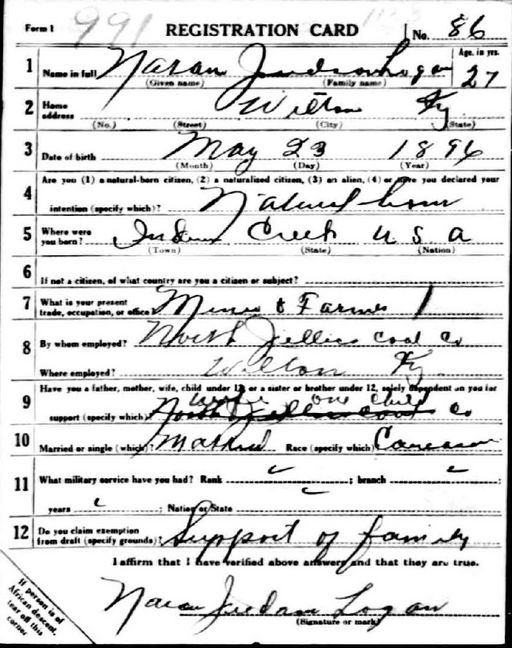 Form 1 991 REGISTRATION CARD No. 86
1 Name in full Logan Age, in yrs. 27
(Given name) (Family name)
2 Home address Wilton Ky
(No.) (Street) (City) (State)
3 Date of birth May 23 1896
(Month) (Day) (Year)
4 Are you (1) a natural-born citizen, (2) a naturalized citizen, (3) an alien, (4) or have you declared your
intention (specify which)? Natural born
5 Where were you born? Creek U S A
(Town) (State) (Nation)
6 If not a citizen, of what country are you a citizen or subject?
7 What is your present trade, occupation, or office? Miner & Farmer 1
8 By whom employed? North Jellico Coal Co
Where employed? Wilton Ky.
9 Have you a father, mother, wife, child under 12, or a sister or brother under 12, solely dependent on you for
wife one child
support (specify which)? North Jellico Coal Co
10 Married or single (which)? Married Race (specify which)
11 What military service have you had? Rank ; branch ;
years ; Nation or State
12 Do you claim exemption from draft (specify grounds)? Support of family
I affirm that I have verified above answers and that they are true.
Logan
(Signature or mark)
If person is of
African descent,
tear off this
corner